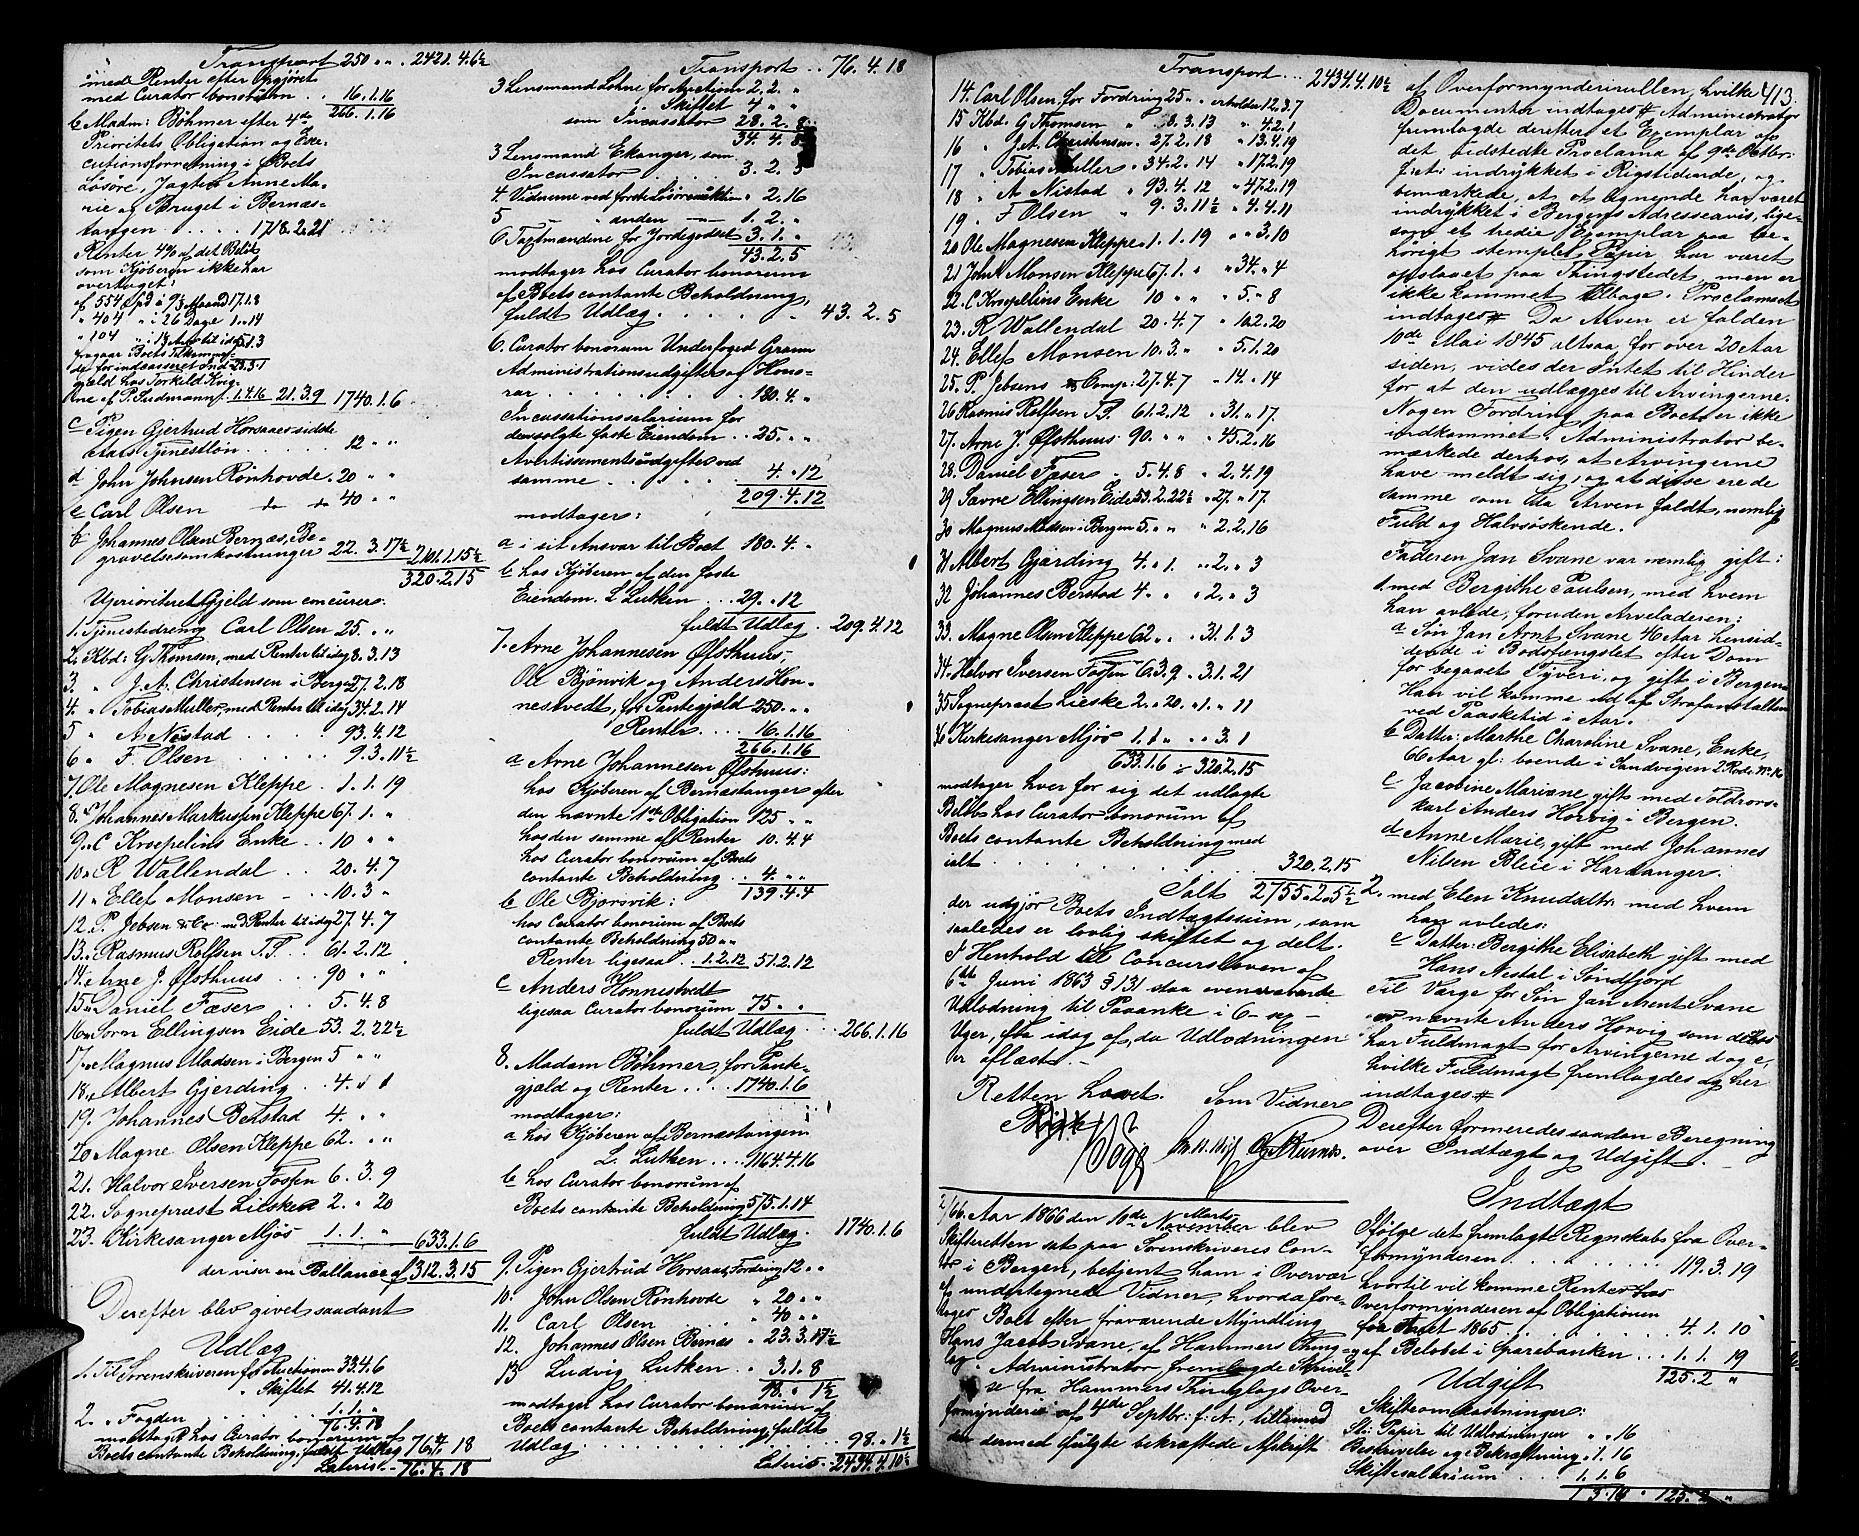 Transport 250 " " . 2421.4.6½
med Renter efter Opgjøret
med Curator bonorum . . 16.1.16
266.1.16
b Madm: Böhmer efter 4de
Prioritets Obligation og Exe-
cutionsforretning i Boets
Løsøre, Jagten Anne Ma-
rie og Bruget i Bernæs-
tangen . . . . 1718.2.21
Renter 4% af det Beløb
som Kjøberen ikke har
overtaget:
af 554 Spd i 9½ Maaned 17.1.8
" 404 " i 26 Dage 1. " 14
" 104
fragaar Boets Tilkommen-
de for indcasseret Ind-
gjæld hos Torkild
ne af P. Sudmann 1.4.16 21.3.9 1740.1.6
c Pigen Gjertrud Horsaas sidste
Aars Tjenestløn . . . . . 12 " "
d John Johnsen Rönhovde . 20 " "
e Carl Olsen do do 40 " "
b Johannes Olsen Bernæs, Be-
gravelsesomkostninger 22.3.17½ 2101.1.15½
320.2.15
Uprioriteret Gjeld som concurerer:
1. Tjenestedreng Carl Olsen 25 . " "
2. Kbd: G Thomsen, med Renter til idag 8.3.13
3. " J.A. Christensen i Bergen 27.2.18
4. " Tobias Muller, med Renter til idag 34.2.14
5 " A Nistad . . . . 93.4.12
6 " F. Olsen . . . . 9.3.11½
7. Ole Magnesen Kleppe . 1.1.19
8. Johannes Markussen Kleppe 67.1. "
9. C Kroepelins Enke . . 10 " "
10. R Wallendal . . 20.4.7
11. Ellef Monsen - . . 10.3 "
12. P. Jebsen & Co. md Renter til idag 27.4.7
13. Rasmus Rolfsen S.P. . . 61.2.12
14. Arne J. Øfsthuus . . 90 " "
15. Daniel Fæser . . . 5.4.8
16. Søvn Ellingsen Eide 53.2.22½
17. Magnus Madsen i Bergen 5 " "
18. Albert Gjerding . . 4. " 1
19. Johannes Berstad 4 " "
20 Magne Olsen Kleppe 62. " "
21. Halvor Iversen Fossen 6.3.9
22. Sogneprest Lieske 2. " 20
23. Kirkesanger Mjøs 1.1. " 633.1.6
der viser en Ballance af 312.3.15
Derefter blev givet saadant
Udlæg
1. Til Sorenskriveren for Auctionen 33.4.6
" Skiftet 41.4.12
2. " Fogden . . . . 1.1. "
76.4.18
modtager hos Curator bonorum af
Boets contante Beholdning, fuldt Udlæg 76.4.18
Lateris . . 76.4.18
Transport . . 76.4.18
3 Lensmand Lohne for Auction 2.2. "
" Skiftet 4 " "
som Incassator 28.2.8
34.4.8
3 Lensmand Ekanger, som
Incassator . . . . . 3.2.5
4. Vidnerne ved første Løsøreauktion " 2.16
5 " " anden — 1.2. "
6. Taxtmændene for Jordegodset 3.1. "
43.2.5
modtager hos Curator bonorum
af Boets contante Beholdning,
fuldt Udlæg . . . . . . 43.2.5
6. Curator bonorum Underfoged Gram
Administrationsudgifter af Hono-
rar . . . . . . . 180.4. "
Incassationssalarium for
den solgte faste Eiendom . . 25. " "
Avertissementsudgifter ved
samme . . . . . . . 4. " 12
209.4.12
modtager:
a i sit Ansvar til Boet 180.4. "
b hos Kjøberen af den faste
Eiendom L Lutken . . . 29. " 12
fuldt Udlæg . 209.4.12
7. Arne Johannesen Øfsthuus,
Ole Bjönvik og Anders Hon-
nestvedt, for Pantegjæld 250. " "
Renter . . . . 16.1.16
266.1.16
a Arne Johannesen Øfsthuus:
hos Kjøberen af Bernæstangen efter
den nævnte 1ste Obligation 125 " "
hos den samme af Renter 10.4.4
hos Curator bonorum af Boets
contante Beholdning . . 4 " "
139.4.4
b Ole Bjorsvik:
hos Curator bonorum af Boets
contante Beholdning 50 " "
Renter ligesaa . . 1.2.12 51.2.12
c Anders Honnestvedt
ligesaa Curator bonorum 75 " "
fuldt Udlæg . . . 266.1.16
8. Madam Böhmer, for Pante-
gjæld og Renter . . . 1740.1.6
modtager:
a hos Kjøberen af Bernæstangen
L. Lutken . . . 1164.4.16
b hos Curator bonorum af
Boets contante Beholdning 575.1.14
fuldt Udlæg . 1740.1.6
9. Pigen Gjertrud Horsaas, Fordring 12 " "
10. John Olsen Rönhovde " 20 " "
11. Carl Olsen . . . " 40 " "
12. Johannes Olsen Bernæs " 23.3.17½
13 Ludvig Lutken . . 3.1.8
98. " 1½
modtager hos Curator bonorum af
Boets contante Beholdning, fuldt
Udlæg . . . . . . . . . 98. " 1½
Lateris . . 2434.4.10½
Transport . . . 2434.4.10½
14. Carl Olsen for Fordring 25 " " erholder 12.3.7
15 Kbd. G Thomsen " 8.3.13 " 4.2.1
16 " J.A. Christensen . 27.2.18 " 13.4.19
17 " Tobias Muller " 34.2.14 " 17.2.19
18 " A Nistad " 93.4.12 " 47.2.19
19 " F Olsen " 9.3.11½ " 4.4.11
20 Ole Magnesen Kleppe " 1.1.19 " " 3.10
21 Johs Monsen Kleppe 67.1. " " 34. " 4
22. C Kroepelins Enke 10 " " " 5. " 8
23. R Wallendal 20.4.7 " 10.2.20
24. Ellef Monsen 10.3. " " 5.1.20
25. P. Jebsens & Comp: 27.4.7 " 14. " 14
26 Rasmus Rolfsen S.P. 61.2.12 " 31. " 17
27. Arne J. Øfsthuus 90. " " " 45.2.16
28. Daniel Fæser . 5.4.8 " 2.4.19
29 Søvne Ellingsen Eide 53.2.22½ " 27. " 17
30 Magnus Madsen i Bergen 5. " " " 2.2.16
31 Albert Gjerding 4. " 1. " 2. " 3
32 Johannes Berstad 4. " " " 2. " 3
33. Magne Olsen Kleppe 62 " " . 31.1.3
34. Halvor Iversen Fossen 6.3.9 " 3.1.21
35 Sogneprest Lieske 2. " 20. " 1. " 11
36 Kirkesanger Mjøs 1.1. " " " 3.1
633.1.6 ÷ 320.2.15
modtager hver for sig det udlagte
Beløb hos Curator bonorum af
Boets contante Beholdning med
ialt . . . . . . . . . 320.2.15
Ialt 2755.2.5½
der udgjør Boets Indtægtssum, som
saaledes er lovlig skiftet og delt.
I Henhold til Concursloven af
6te Juni 1863 § 131 staa ovenævnte
Udlodning til Paaanke i 6- sex -
Uger, fra idag af, da Udlodningen
er aflæst. -
Retten hævet. Som Vidner
2/66. Aar 1866 den 16de Marts November blev
Skifteretten sat paa Sorenskriveres Con-
tor i Bergen, betjent ham i Overvær
af undertegnede Vidner, hvorda fore-
toges Boet efter fraværende Myndling
Hans Jacob Svane, af Hammers Thing-
lag. Administrator fremlagde Skrivel-
se fra Hammers Thinglags Over-
formynderie af 4de Septbr: f. A., tilligemed
den dermed fulgte bekræftede Afskrift
413.
af Overformynderirullen, hvilke
Documenter indtages # Administrator
fremlagde derefter et Exemplar af
det udstedte Proclama af 9de Octbr:
f: A: indrykket i Rigstidende, og
bemærkede, at et lignende har været
indrykket i Bergens Adresseavis, lige-
som et tredie Exemplar paa be-
hørigt stemplet Papir har været
opslaaet paa Thingstedet, men er
ikke kommet tilbage. Proclamaet
indtages # Da Arven er falden
10de Mai 1845 altsaa for over 20 Aar
siden, vides der Intet til Hinder
for at den udlægges til Arvingerne.
Nogen Fordring paa Boet er ikke
indkommet. Administrator be-
mærkede derhos, at Arvingerne
have meldt sig, og at disse ere de
samme som da Arven faldt, nemlig
Fuld og Halvsøskende.
Faderen Jan Svane var nemlig gift:
1. med Bergithe Paulsen, med hvem
han avlede, foruden Arveladeren:
a Søn Jan Arnt Svane 46 Aar hensid-
dende i Bodsfængslet efter Dom
for begaaet Tyveri, og gift i Bergen.
Han vil komme ud af Strafanstalten
ved Paasketid i Aar.
b Datter: Marthe Charoline Svane, Enke,
66 Aar gl: boende i Sandvigen 2 Rode No 16
c Jacobine Mariane gift med Toldrors-
karl Anders Horvig i Bergen.
d Anne Marie, gift med Johannes
Nilsen Bleie i Hardanger.
2. med Elen Knudsdtr: med hvem
han avledes:
e Datter: Bergithe Elisabeth gift med
Hans Nestal i Søndfjord
Til Værge for Søn Jan Arnt Svane
er nævnte Anders Horvig som derhos
har Fuldmagt for Arvingerne d og e,
hvilke Fuldmagt fremlagdes og her
indtages #
Derefter formeredes saadan Beregning
over Indtægt og Udgift. -
Indtægt
Ifølge det fremlagte Regnskab fra Over-
formynderen . . . . . . . 119.3.19
hvortil vil komme Renter hos
Overformynderen af Obligationen
fra Aaret 1865 . . . . . . . . 4.1.10
og af Beløbet i Sparebanken . . . 1.1.19
125.2 "
Udgift
Skifteomkostninger:
St: Papir til Udlodningen " " 16
Beskrivelse og Bekræftning " 1.16
Skiftesalarium . . . 1.1.6
1.3.14 " 125.2 "